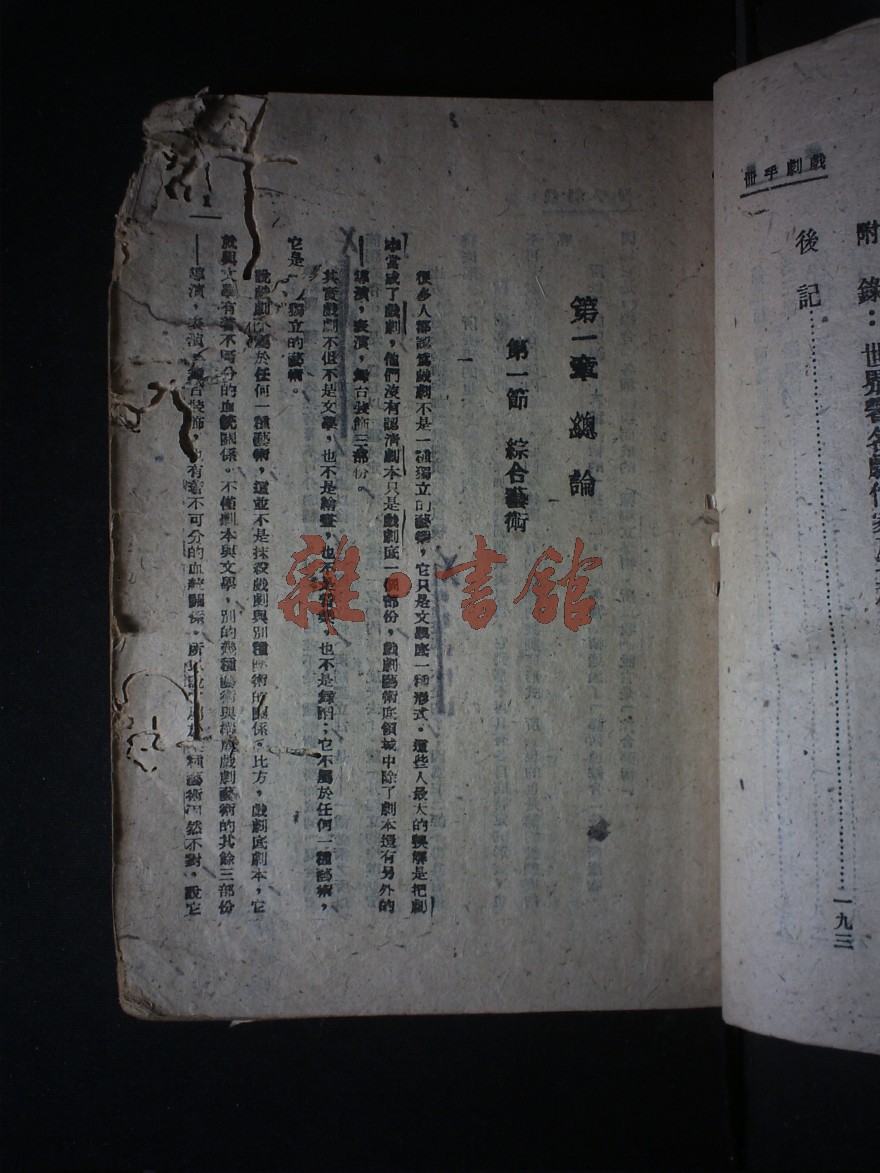 戲劇手冊
附錄：世界著名劇作家
後記……一九三
第一章 總論
第一節 綜合藝術
很多人都認爲戲劇不是一種獨立的藝術，它只是文學底一種形式。這些人最大的誤解是把劇
本當成了戲劇，他們沒有認清劇本只是戲劇底一個部份，戲劇藝術底領域中除了劇本還有另外的
——導演，表演，舞台裝飾三部份。
其實戲劇不但不是文學，也不是繪畫，也不是音樂，也不是舞蹈；它不屬於任何一種藝術，
它是一個獨立的藝術。
說戲劇不屬於任何一種藝術，這並不是抹殺戲劇與別種藝術的關係。比方，戲劇底劇本，它
就與文學有着不可分的血統關係。不僅劇本與文學，別的幾種藝術與構成戲劇藝術的其餘三部份
——導演，表演，舞台裝飾，也有着不可分的血統關係。所以說它屬於某種藝術固然不對，說它
1
雜·書館